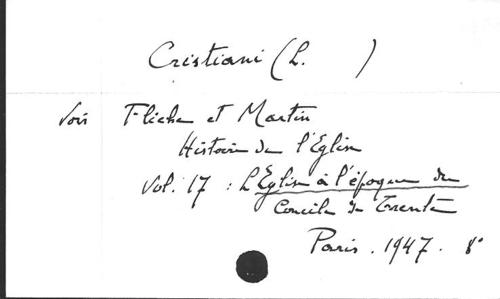 Cristiani (L. )
Voir Fliche et Martin
Histoire de l'Eglise
Vol. 17 : L'Eglise à l'époque du
Concile de Trente
Paris. 1947. 8°